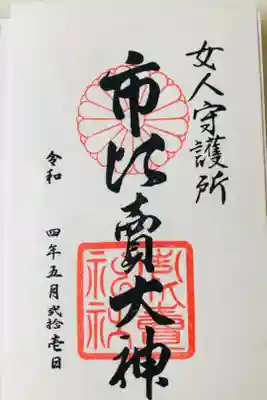 女人守護所
市比賣大神
令和 四年五月弐拾壱日